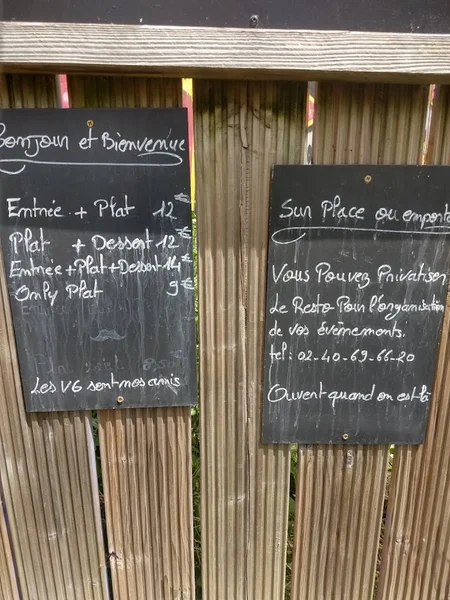 Bonjour et Bienvenue
Entrée + Plat 12€
Plat + Dessert 12€
Entrée + Plat + Dessert 14€
Only Plat 9€
Les VG sont nos amis
Sur Place ou emporte
Vous Pouvez Privatiser
Le Resto Pour l'organisation
de vos évènements.
tel : 02-40-69-66-20
Ouvent quand on est-là